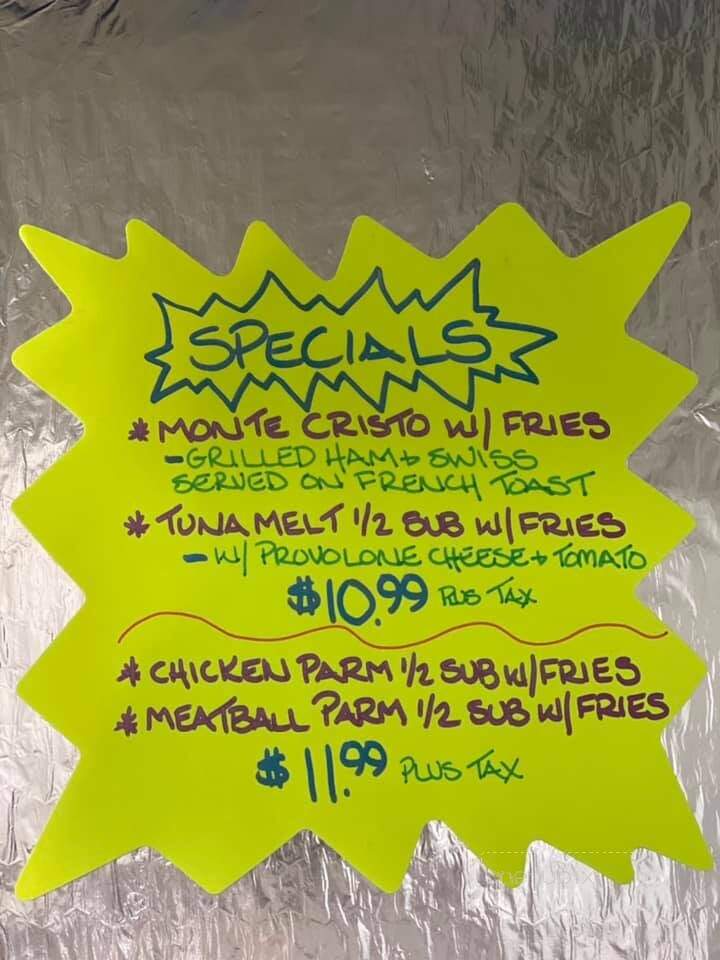 SPECIALS
* MONTE CRISTO W/ FRIES
- GRILLED HAM + SWISS
SERVED ON FRENCH TOAST
* TUNA MELT 1/2 SUB W/ FRIES
- W/ PROVOLONE CHEESE + TOMATO
$10.99 PLUS TAX
* CHICKEN PARM 1/2 SUB W/ FRIES
* MEATBALL PARM 1/2 SUB W/ FRIES
$11.99 PLUS TAX